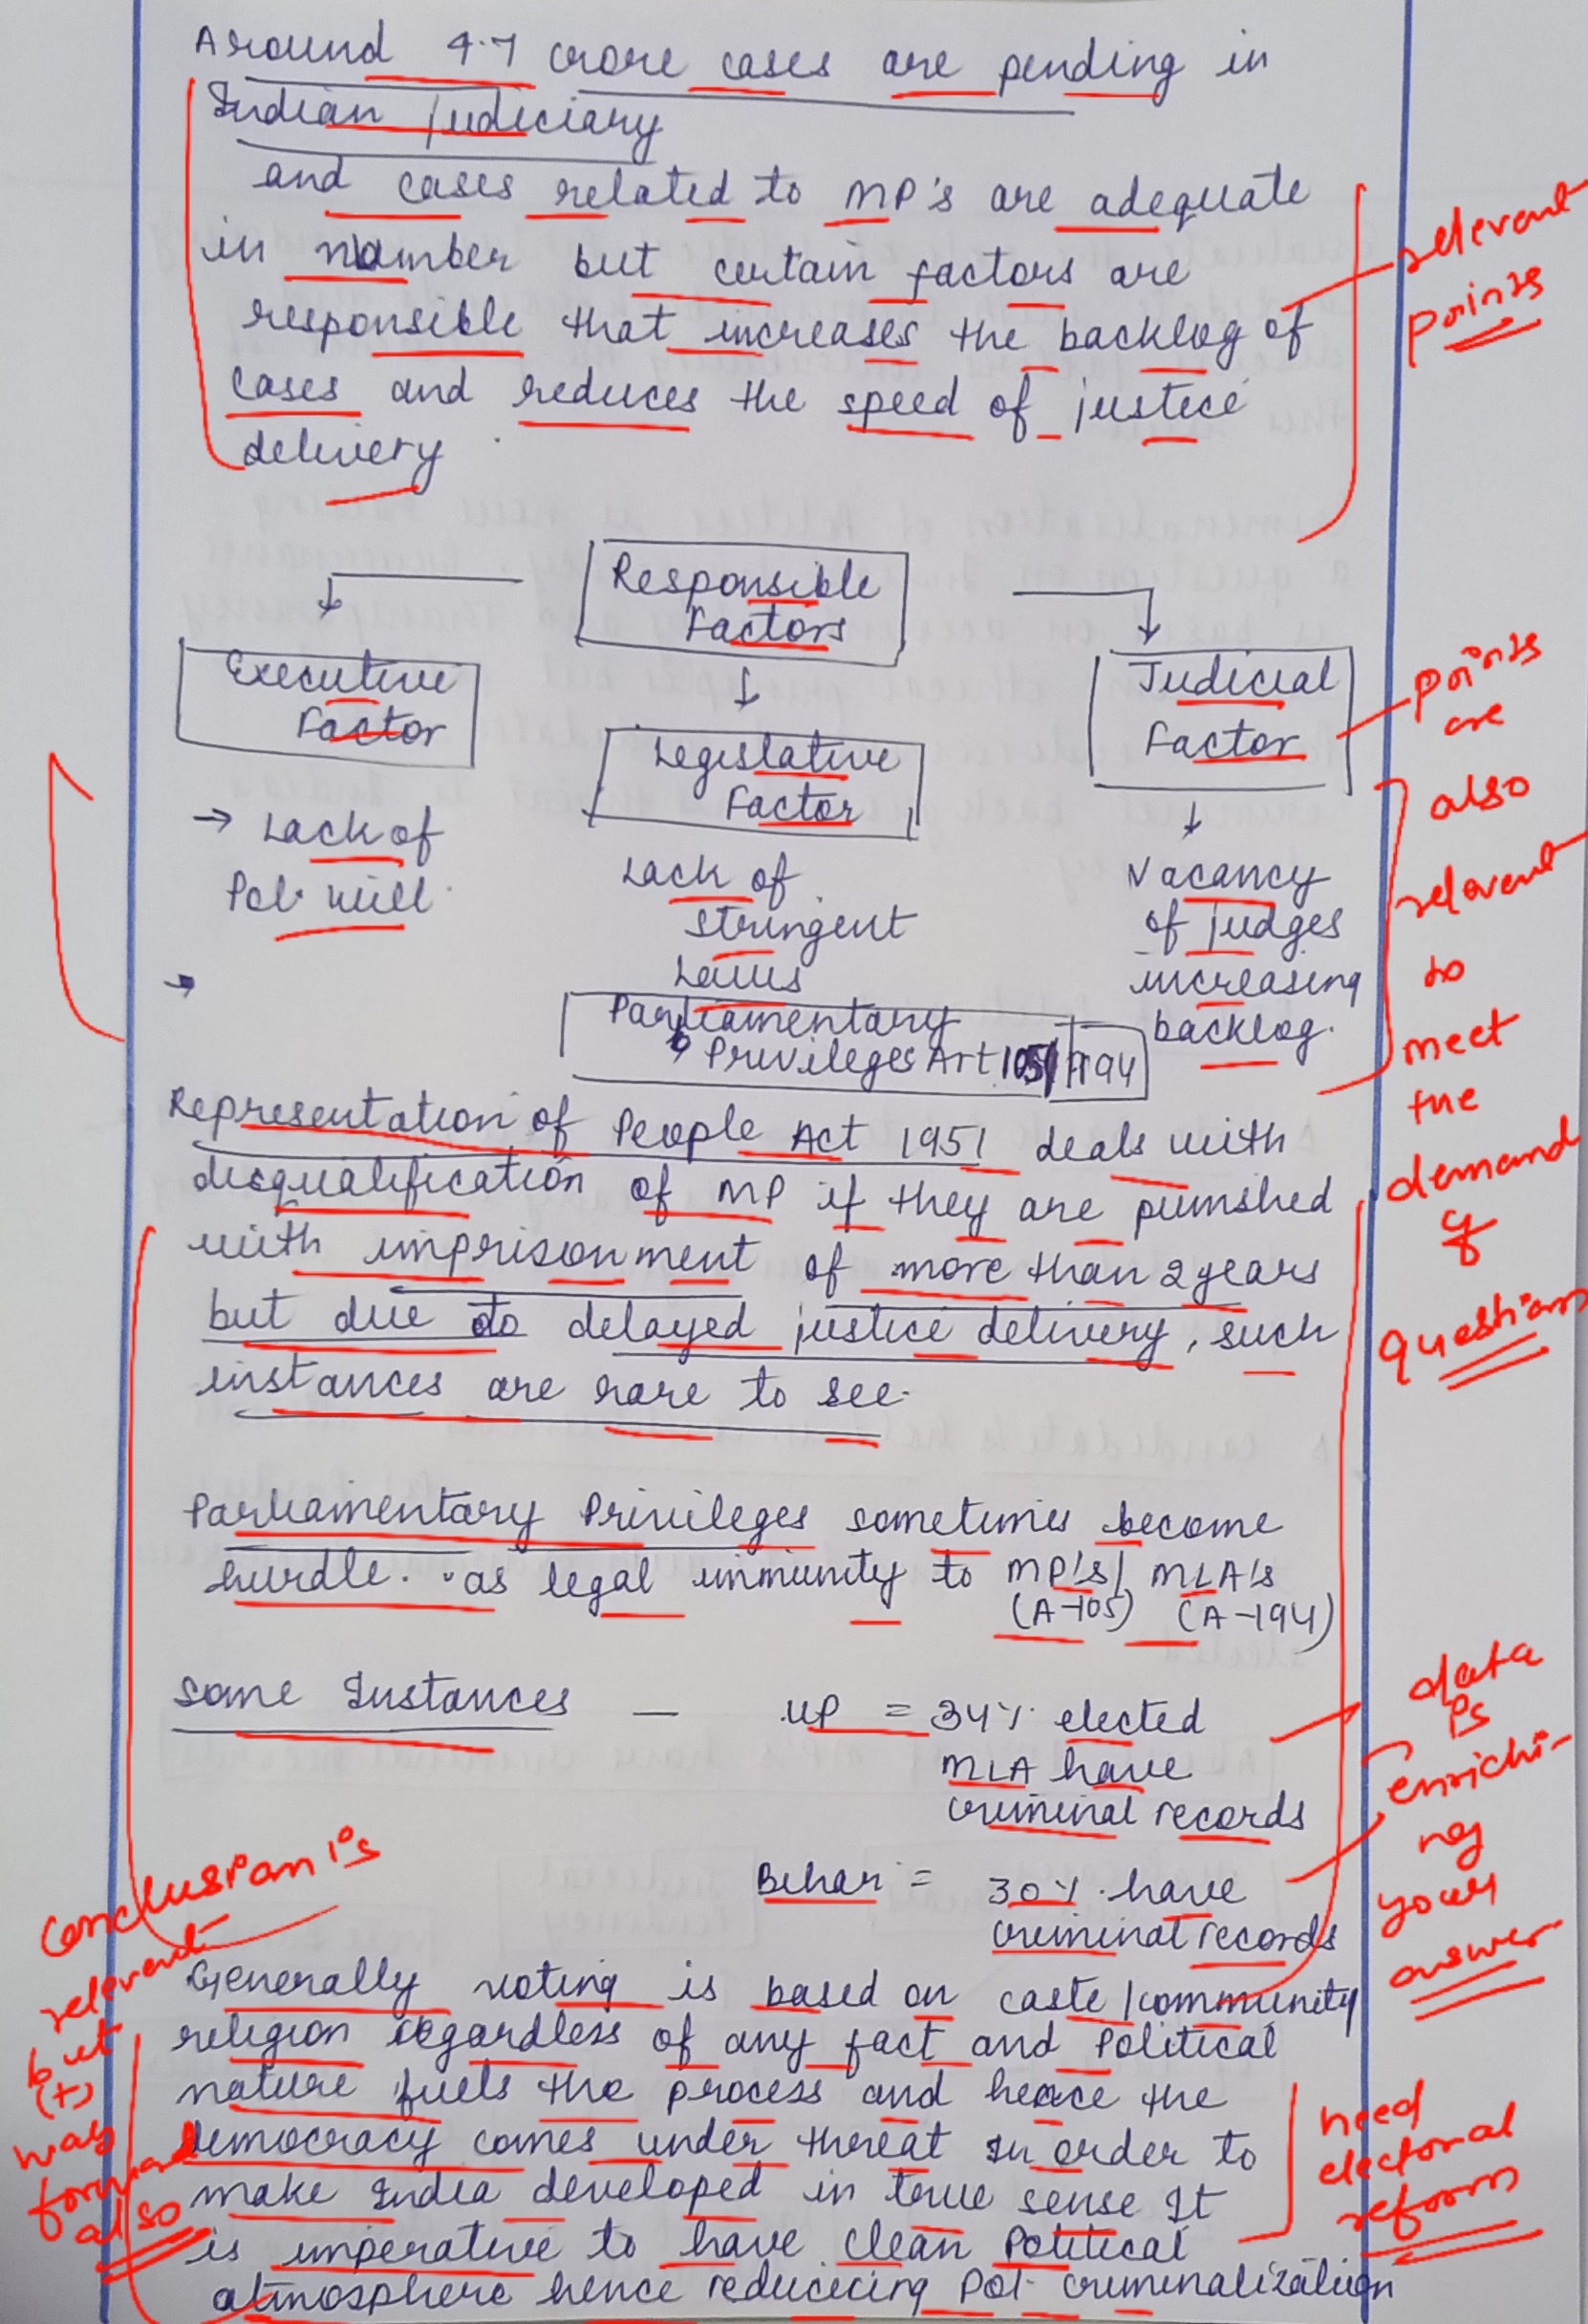 Around 4.7 crore cases are pending in
Indian Judiciary
and cases related to MP's are adequate
in number but certain factors are
responsible that increases the backlog of
cases and reduces the speed of justice
delivery.
relevent
points
Responsible
Factors
Executive
Factor
Legislative
Factor
Judicial
Factor
→ Lack of
Pol. will.
Lack of
stringent
Laws
Vacancy
of judges
increasing
backlog.
Parliamentary
Privileges Art 105/194
points
are
also
relevent
to
meet
the
demand
of
question
Representation of People Act 1951 deals with
disqualification of MP if they are punished
with imprisonment of more than 2 years
but due to delayed justice delivery, such
instances are rare to see.
Parliamentary Privileges sometimes become
hurdle. as legal immunity to MP's/ MLA's
(A-105) (A-194)
Some Instances — UP = 34% elected
MLA have
criminal records
Bihar = 30% have
criminal records
data
is
enrichi-
ng
your
answer
Generally voting is based on caste/community
religion regardless of any fact and Political
nature fuels the process and hence the
democracy comes under threat In order to
make India developed in true sense It
is imperative to have clean Political
atmosphere hence reducecing Pol. criminalization
conclusion is
relevent
but
(+)
way
forward
also
need
electoral
reform